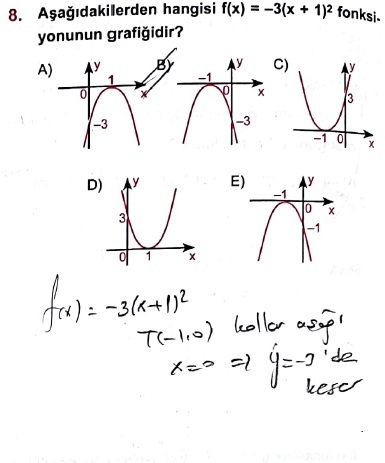 8. Aşağıdakilerden hangisi f(x) = –3(x + 1)² fonksi-
yonunun grafiğidir?
A) y 1 0 x –3
B) y –1 0 x –3
C) y 3 –1 0 x
D) y 3 0 1 x
E) y –1 0 x –1
f(x) = -3(x+1)²
T(-1,0) kollar aşağı
x=0 => y=-3 'de
keser